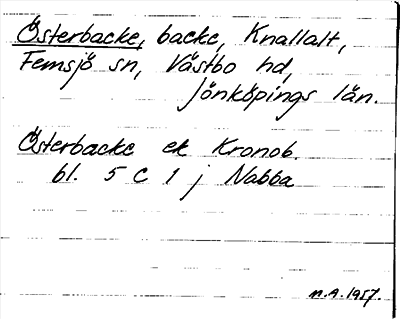 Österbacke, backe, Knallalt,
Femsjö sn, Västbo hd,
Jönköpings län.
Österbacke ek Kronob.
bl. 5 C 1 j Nabba
n.A. 1957.